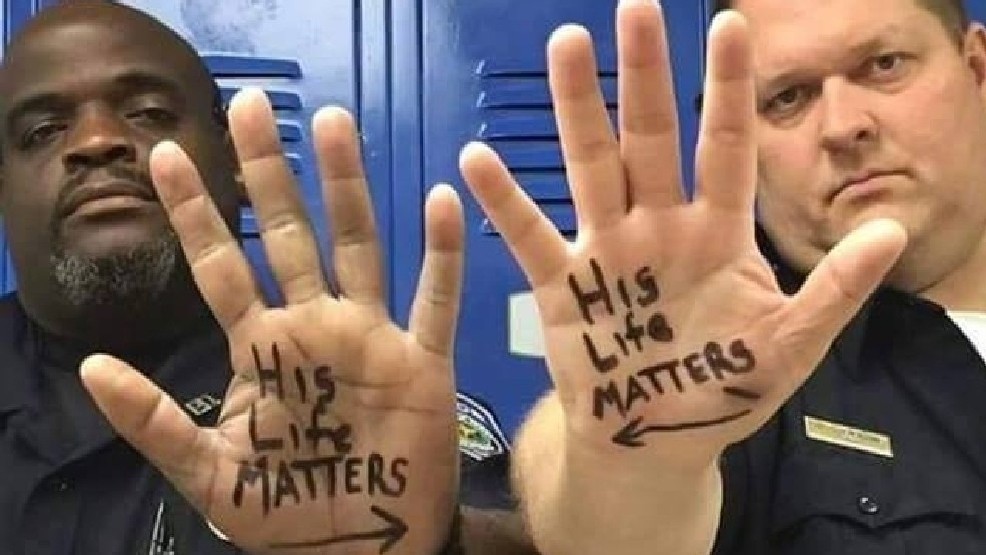 His
Life
MATTERS
His
Life
MATTERS